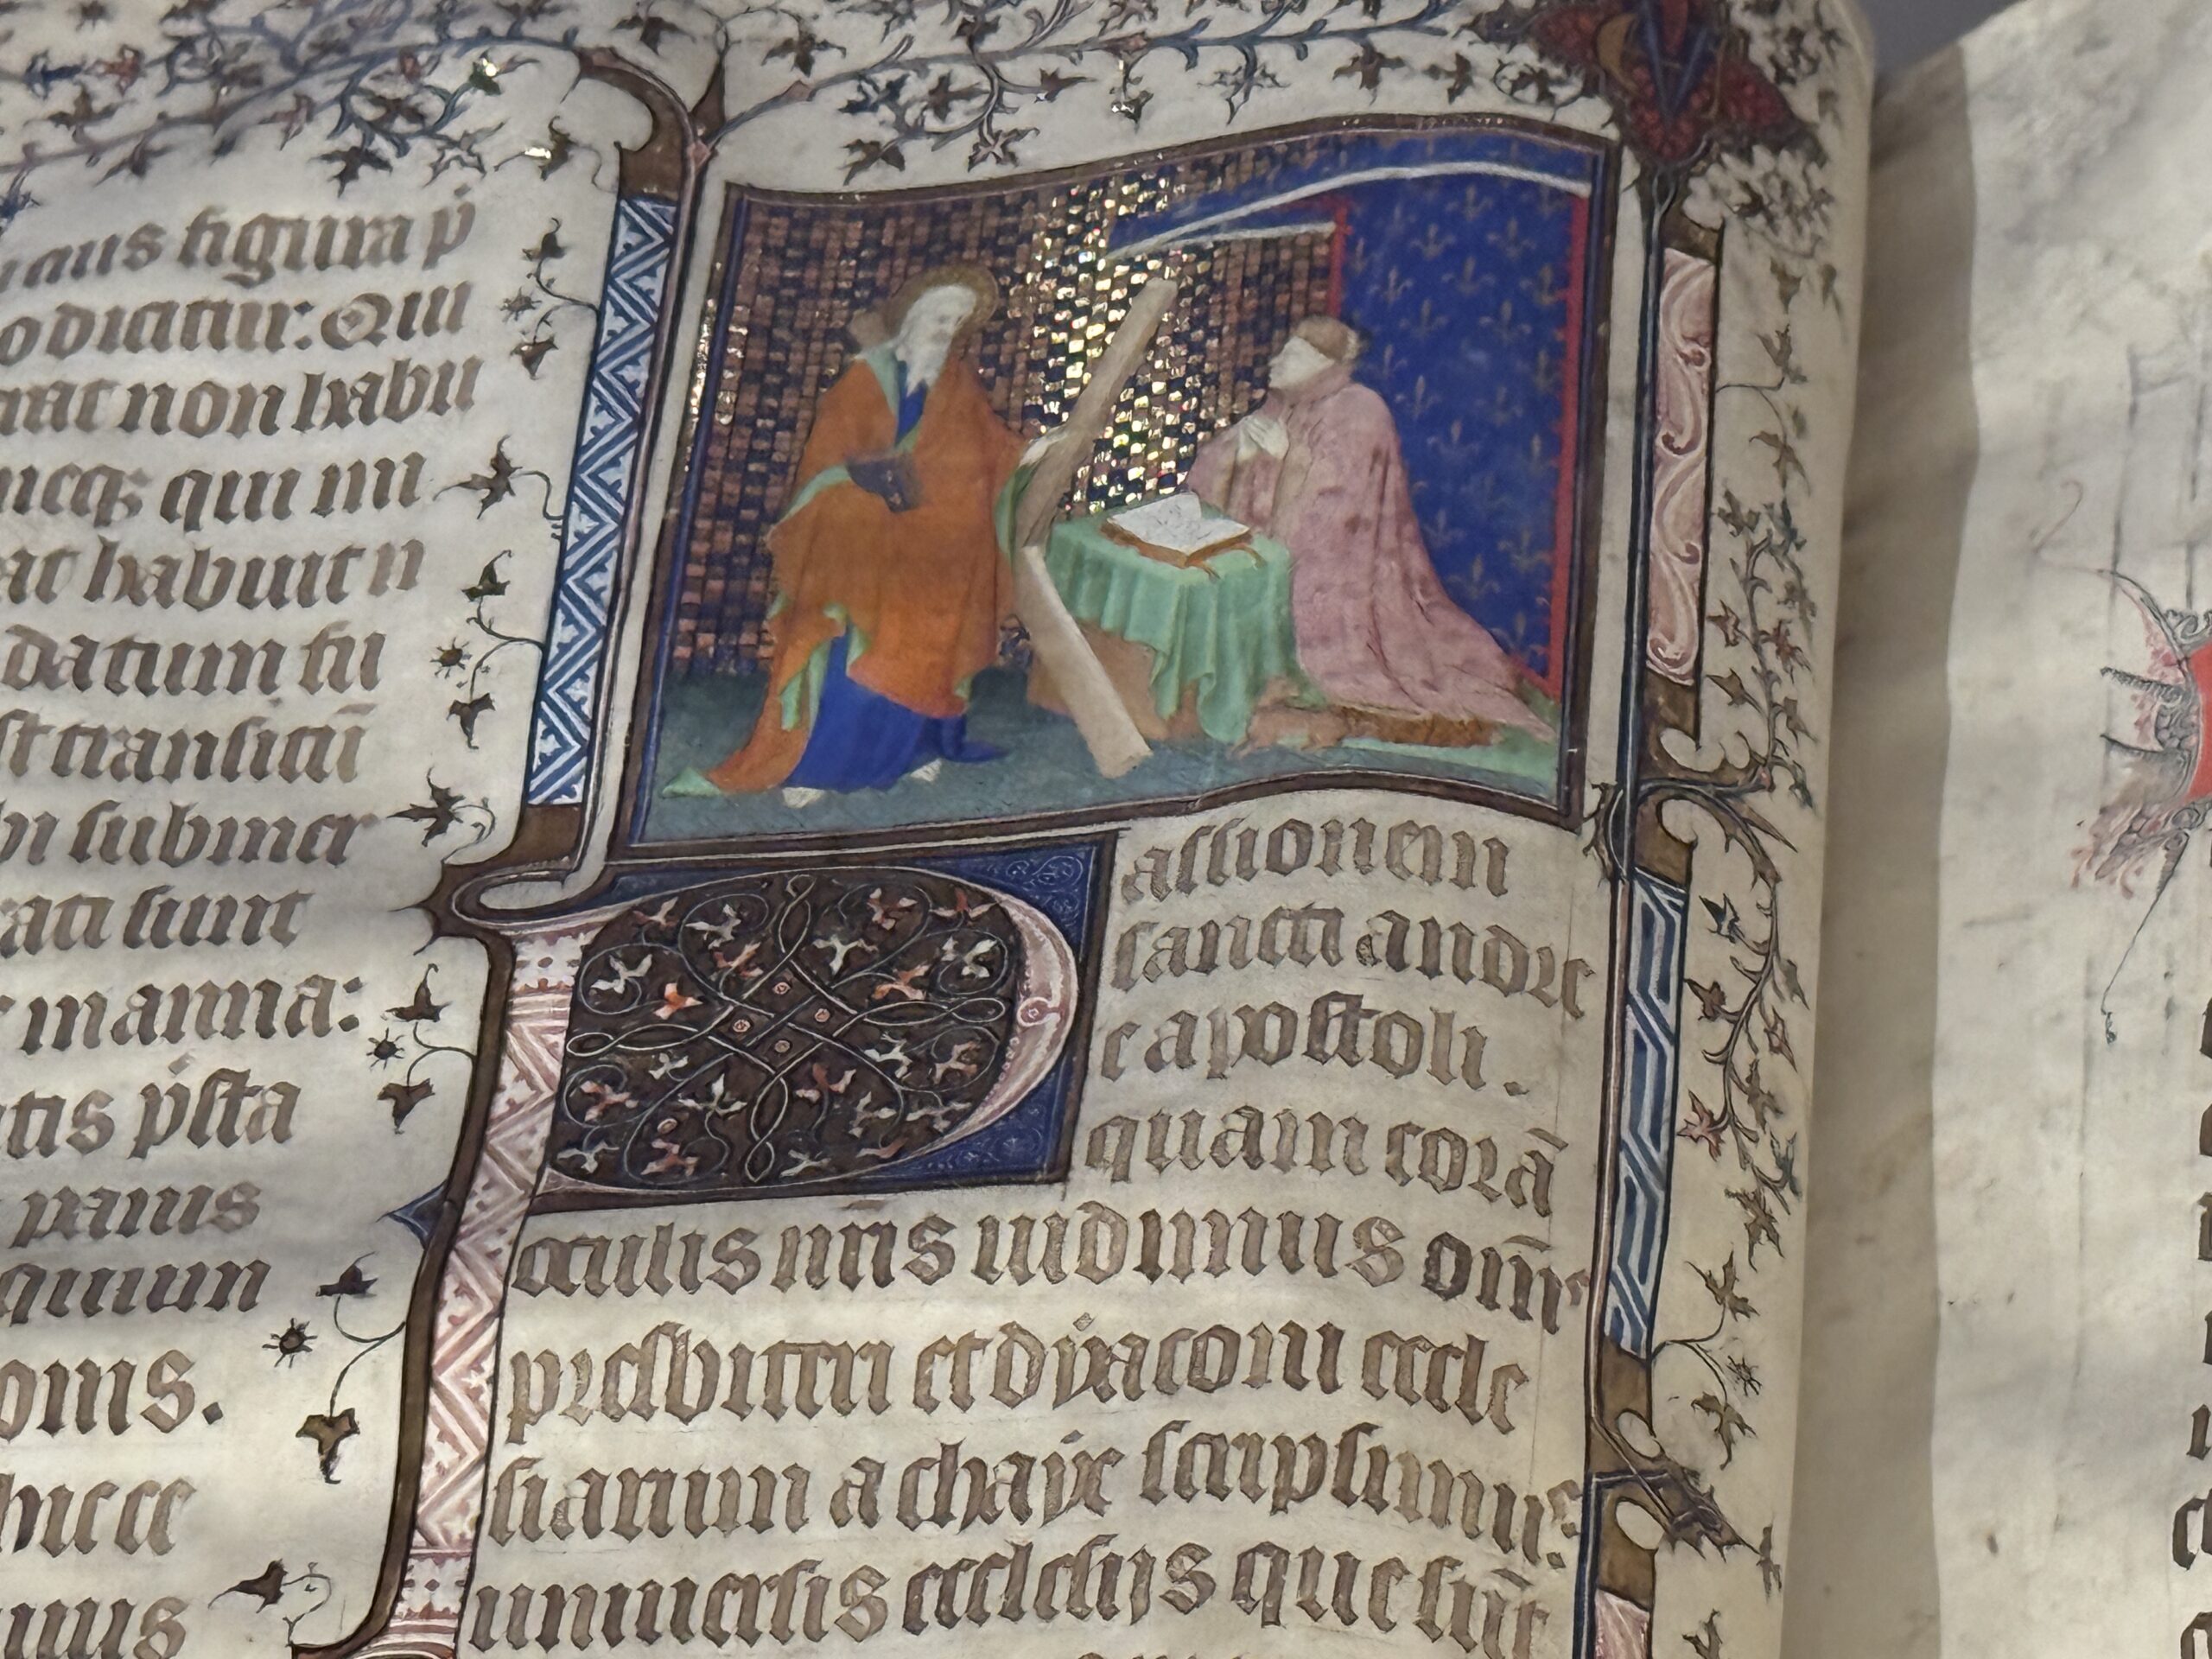 cius figura p̄
o dicitur: Qui
rat non habu
necq; qui mi
at habuit n
datum fu
st transitū
bi submer
rati sunt
manna:
tis p̄sta
panis
quiun
onis.
Passionem
sancti andre
e apostoli.
quam corā
oculis nr̄is uidimus om̄e
presbiteri et dyaconi eccle
siarum achaye scripsimus:
uniuersis ecclesiis que sūt